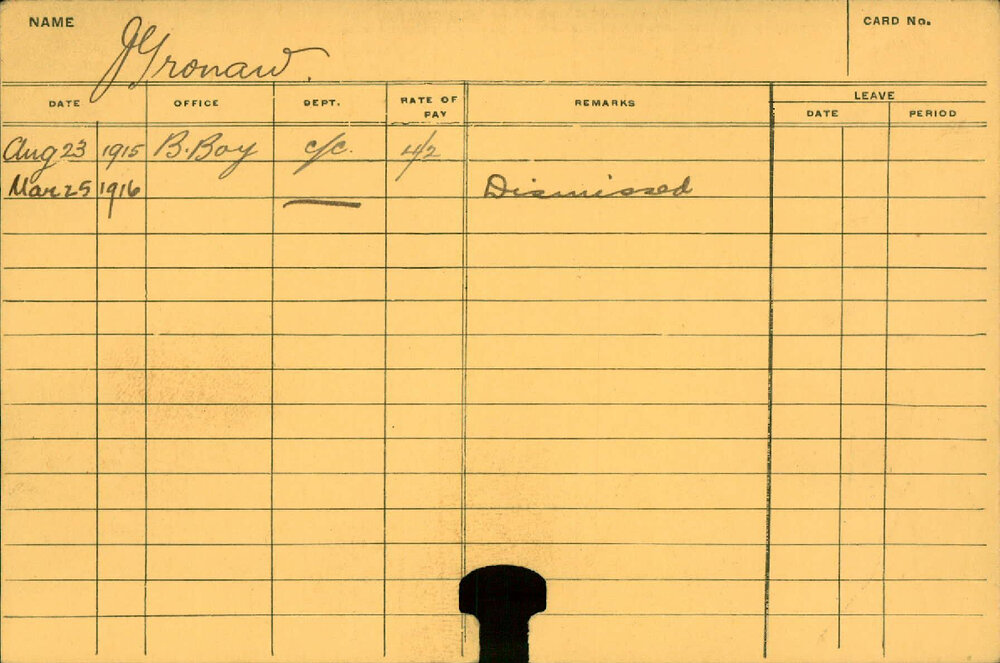 NAME J Gronaw. CARD No.
DATE OFFICE DEPT. RATE OF PAY REMARKS LEAVE
DATE PERIOD
Aug 23 1915 B. Boy c/c. 4/2
Mar 25 1916 Dismissed